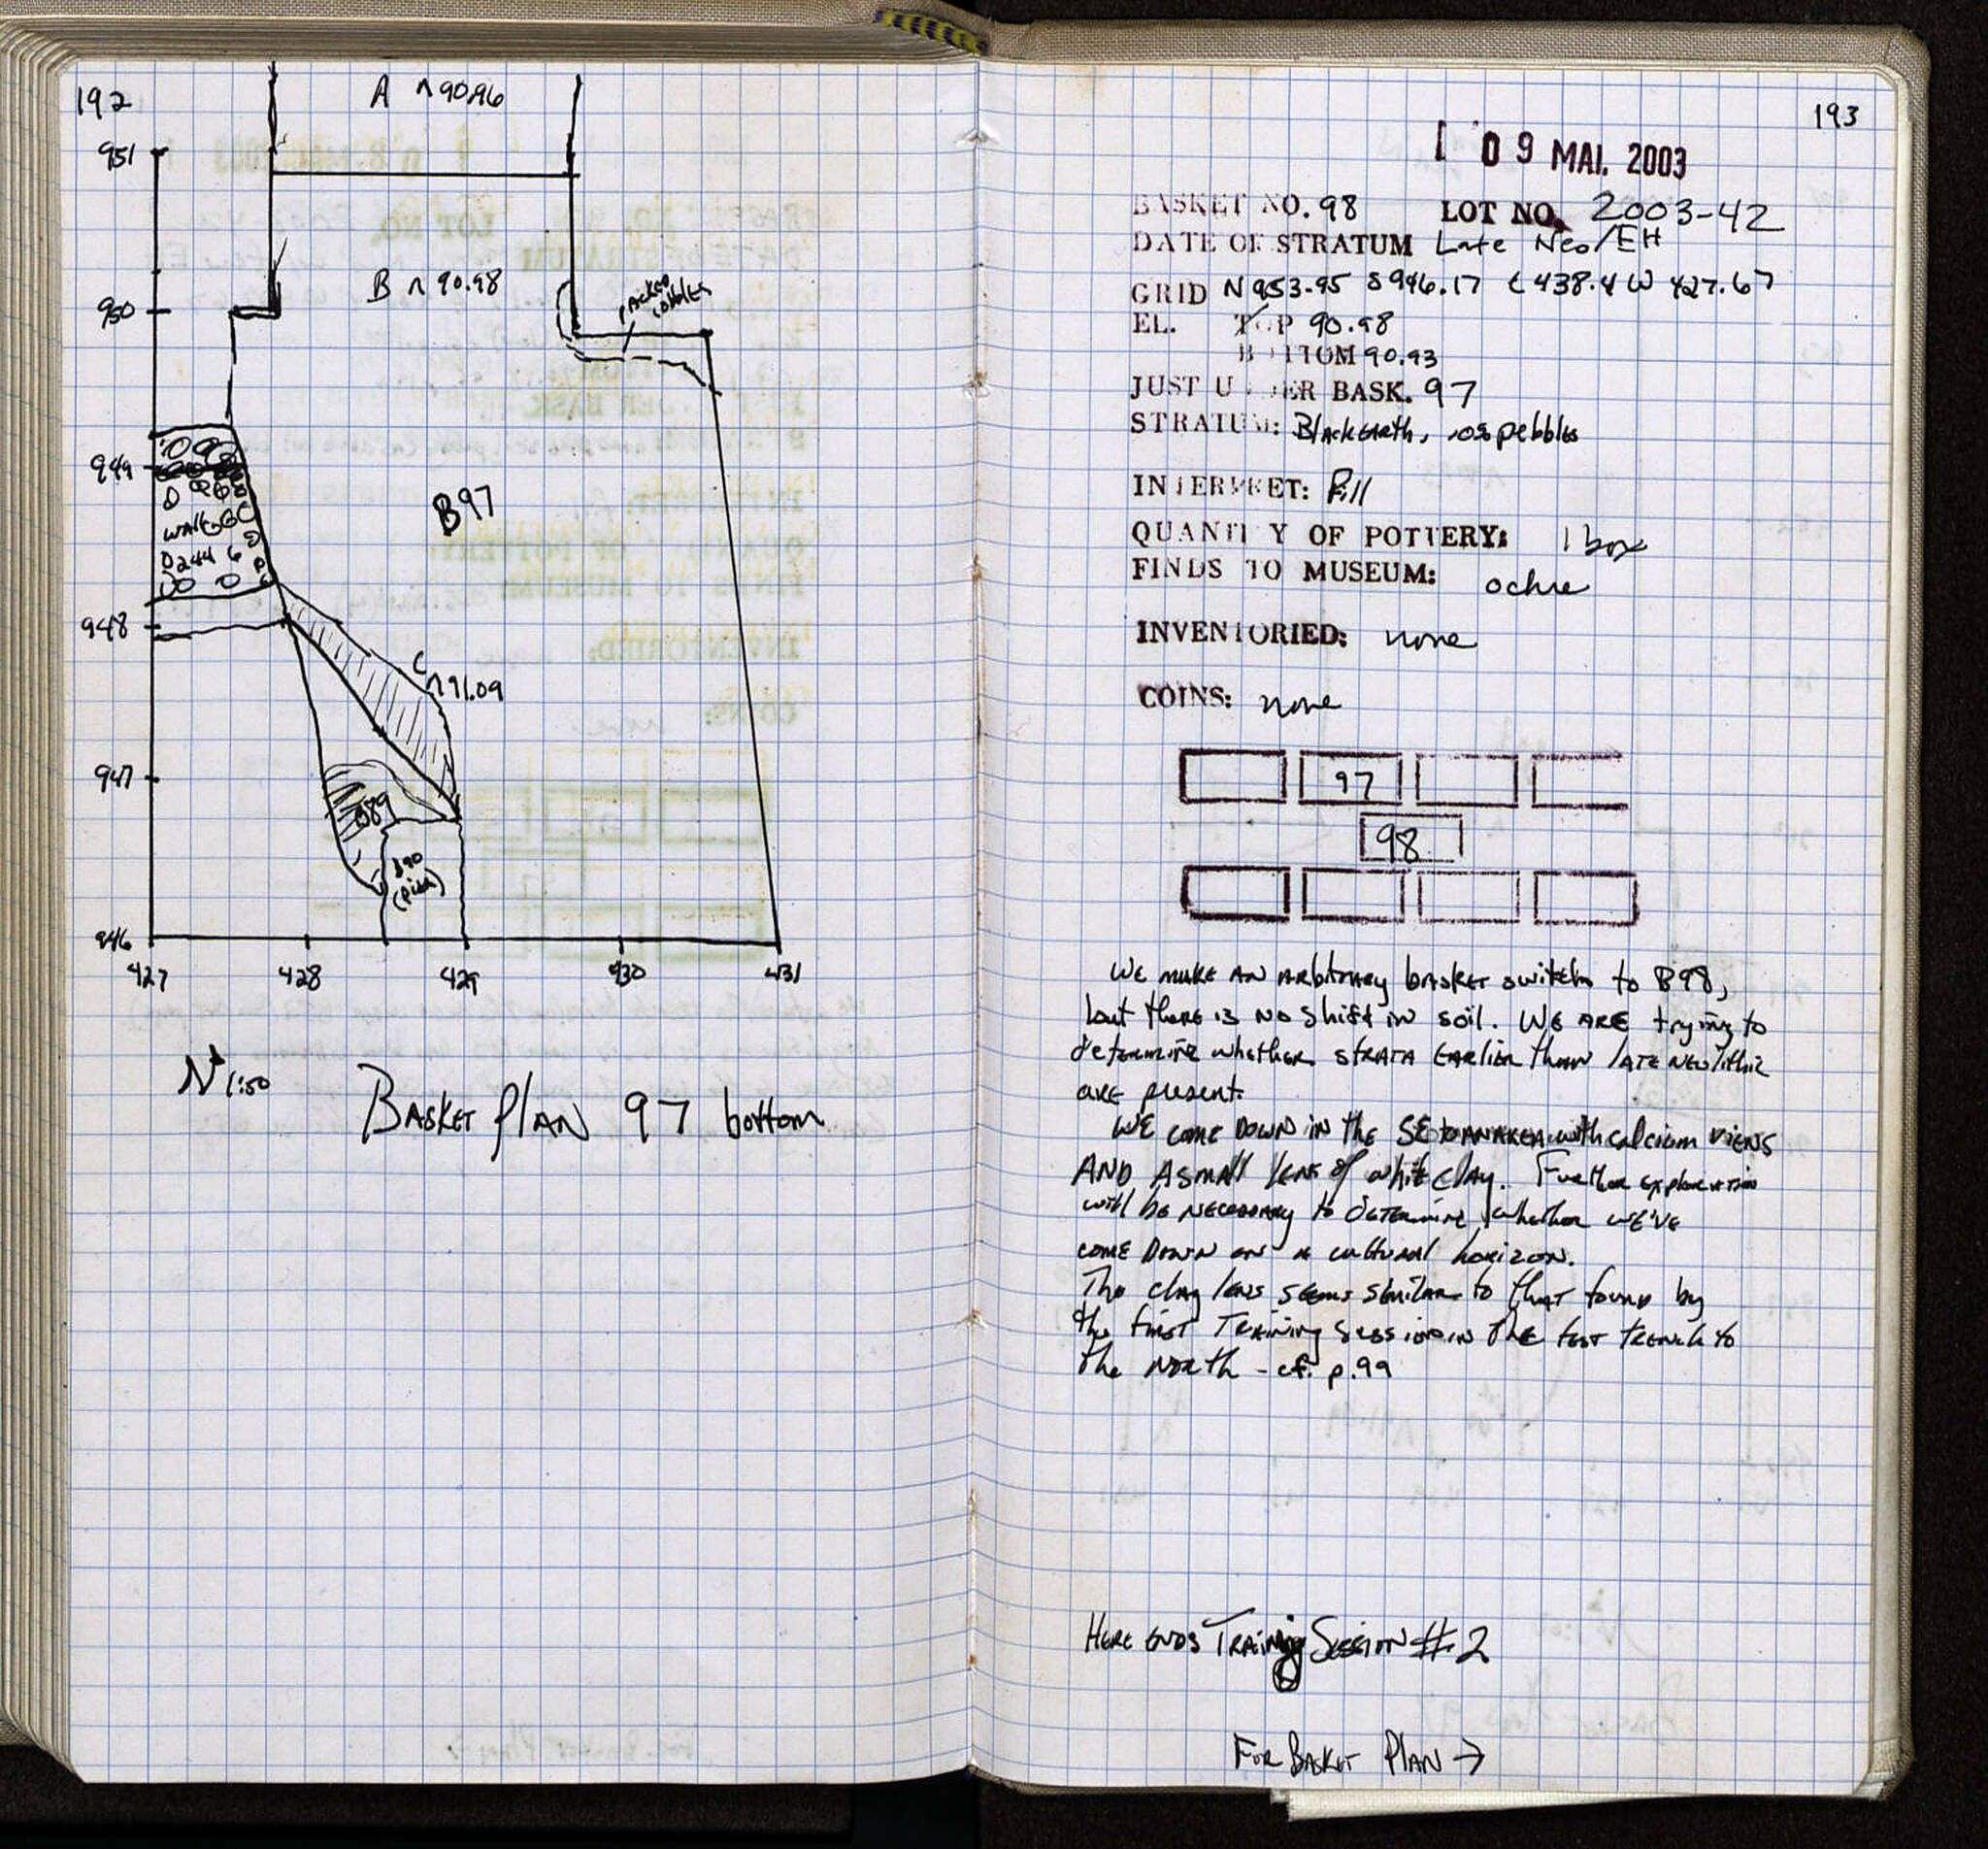 192
A ∩ 90.96
951
B ∩ 90.98
packed cobbles
950
949
WALL
B97
0244
948
C
∩ 91.09
947
B89
B90
(pisé)
946
427 428 429 430 431
N 1:50
BASKET PLAN 97 bottom
193
09 MAI. 2003
BASKET NO. 98 LOT NO. 2003-42
DATE OF STRATUM Late Neo/EH
GRID N 953.95 S 946.17 E 438.4 W 427.67
EL. TOP 90.98
BOTTOM 90.93
JUST UNDER BASK. 97
STRATUM: Black earth, pebbles
INTERPRET: Fill
QUANTITY OF POTTERY: 1 box
FINDS TO MUSEUM: ochre
INVENTORIED: none
COINS: none
97
98
WE MAKE AN ARbitrary basket switch to B98,
but there is no shift in soil. WE ARE trying to
determine whether STRATA EARlier than LATE NEOlithic
ARE present.
WE come DOWN IN the SE to AN AREA with calcium viens
AND A small lens of white clay. Further exploration
will be necessary to determine whether WE'VE
come DOWN on a cultural horizon.
The clay lens seems similar to that found by
the first Training session in the test trench to
the North - cf. p. 99
HERE ENDS TRAINING SESSION # 2
FOR BASKET PLAN →